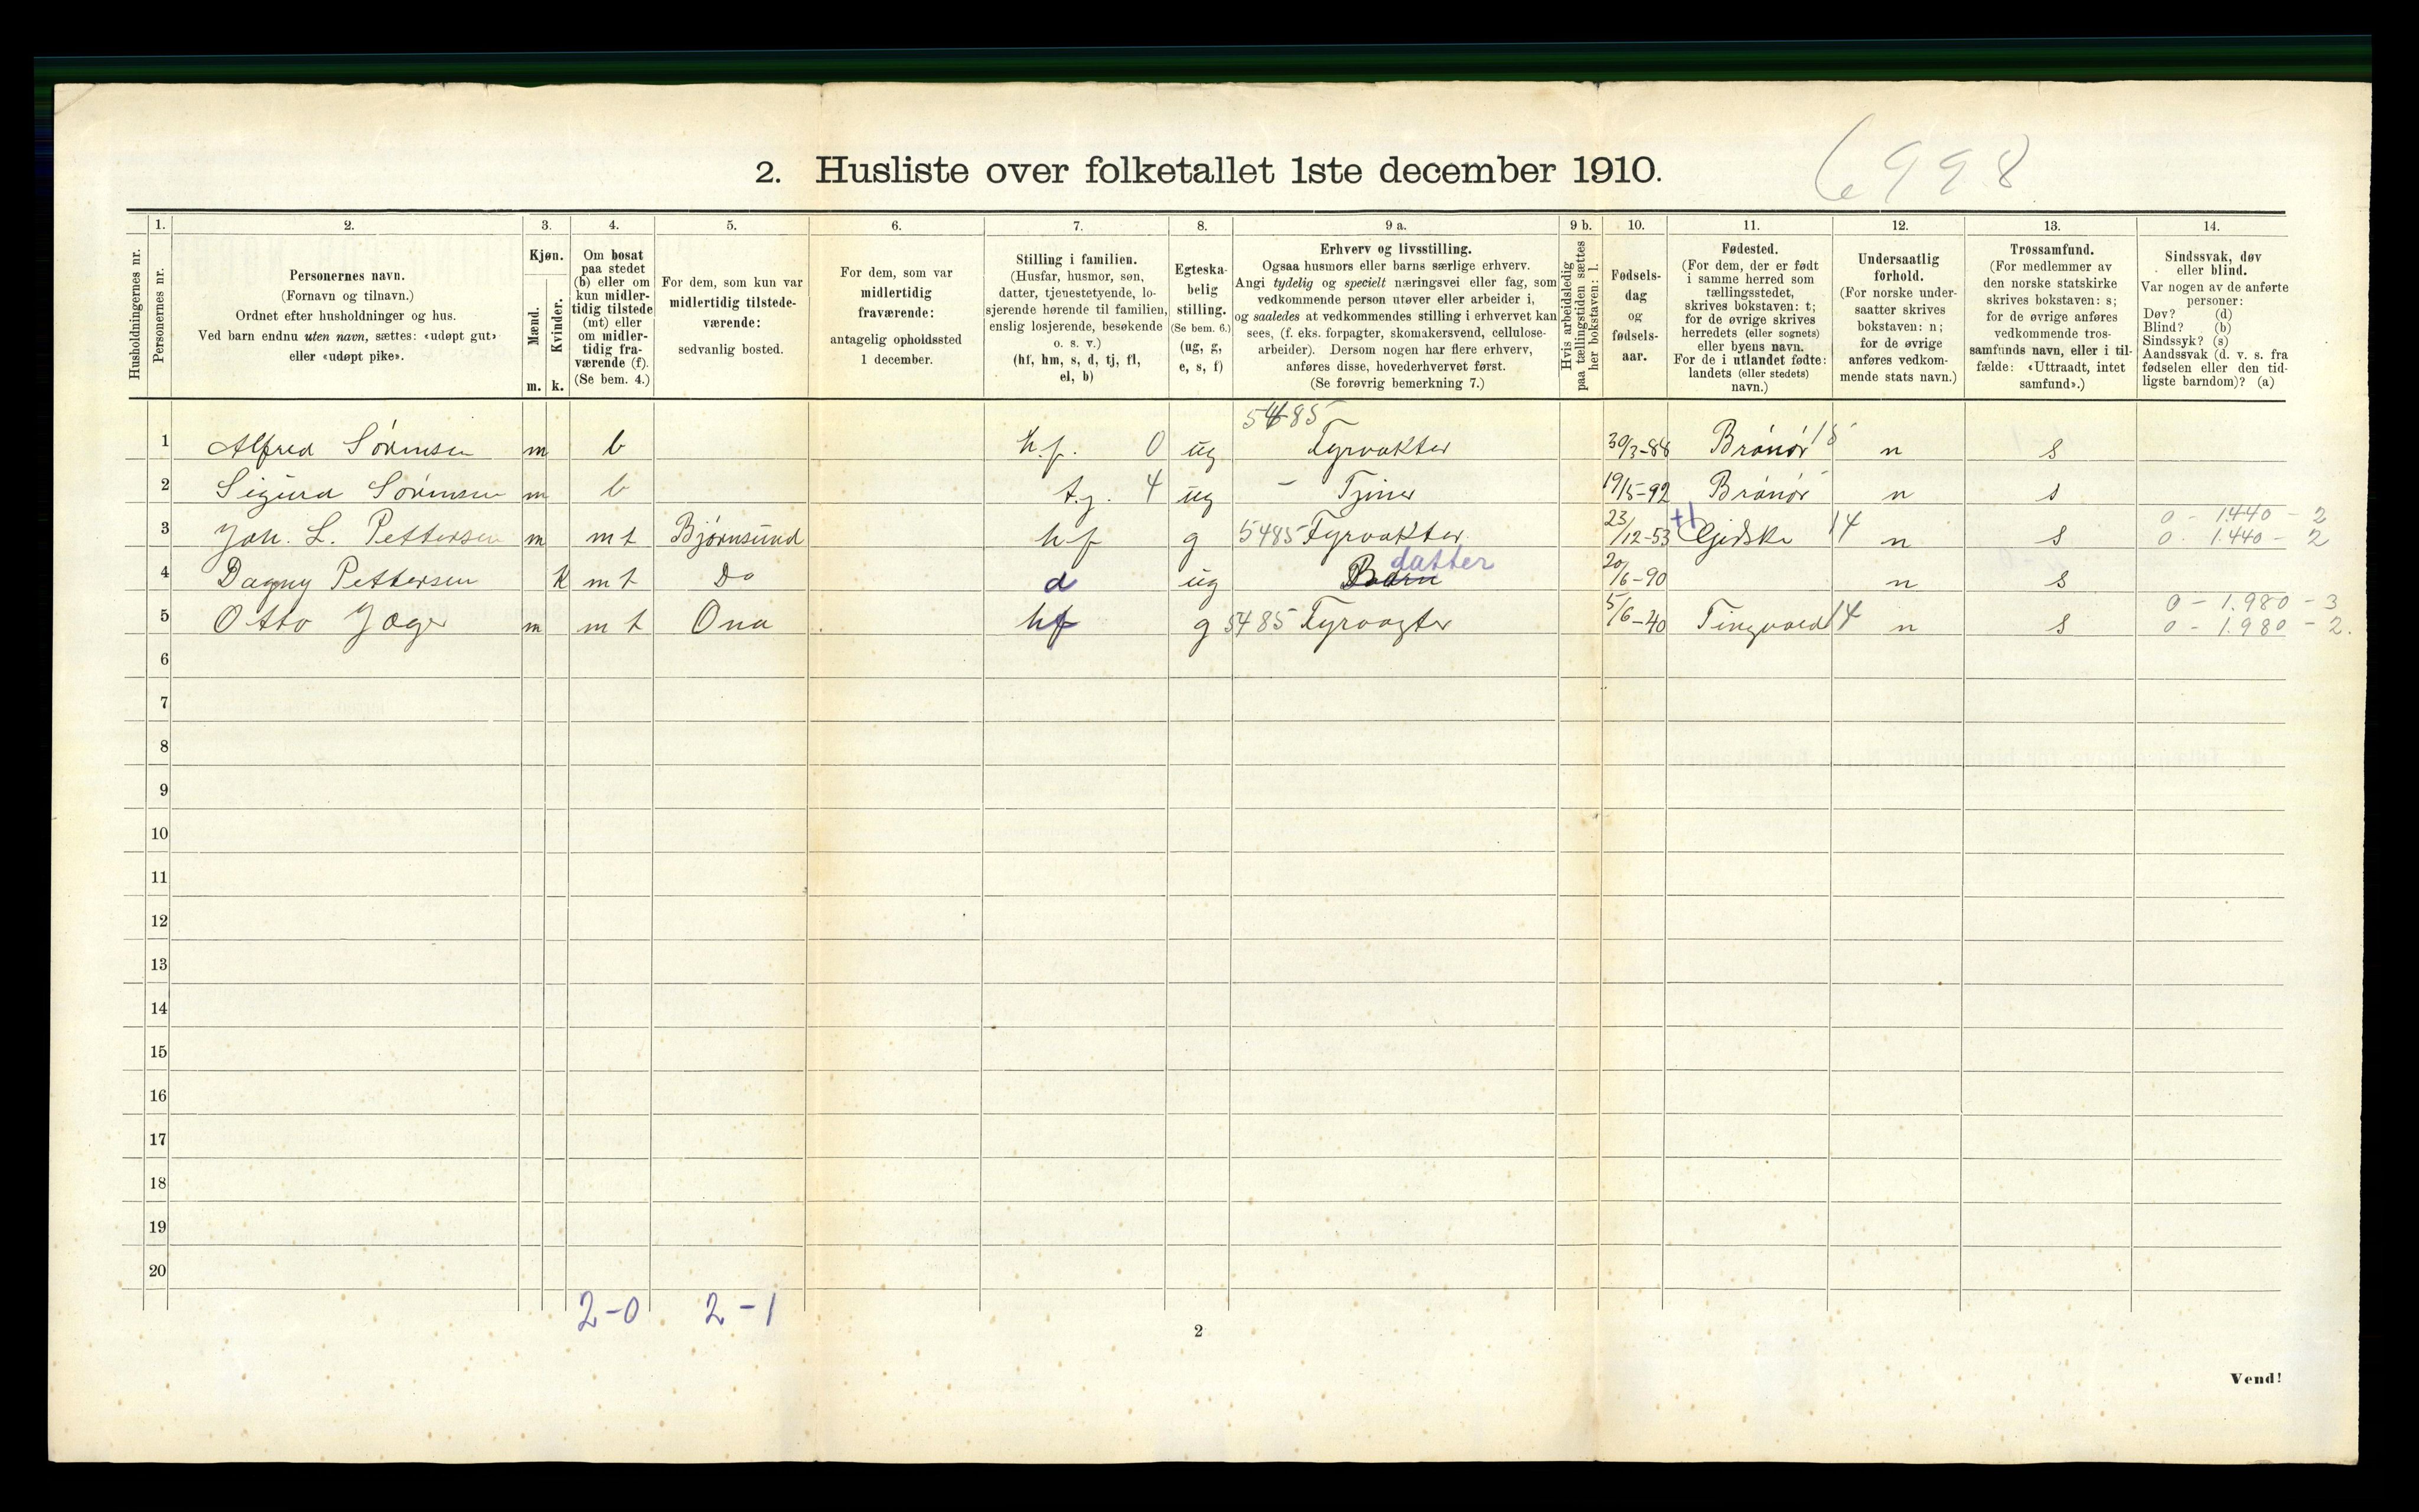 2. Husliste over folketallet 1ste december 1910.
6998
Husholdningernes nr.
1.
Personernes nr.
2.
Personernes navn.
(Fornavn og tilnavn.)
Ordnet efter husholdninger og hus.
Ved barn endnu uten navn, sættes: «udøpt gut»
eller «udøpt pike».
3.
Kjøn.
Mænd.
Kvinder.
m. k.
4.
Om bosat
paa stedet
(b) eller om
kun midler-
tidig tilstede
(mt) eller
om midler-
tidig fra-
værende (f).
(Se bem. 4.)
5.
For dem, som kun var
midlertidig tilstede-
værende:
sedvanlig bosted.
6.
For dem, som var
midlertidig
fraværende:
antagelig opholdssted
1 december.
7.
Stilling i familien.
(Husfar, husmor, søn,
datter, tjenestetyende, lo-
sjerende hørende til familien,
enslig losjerende, besøkende
o. s. v.)
(hf, hm, s, d, tj, fl,
el, b)
8.
Egteska-
belig
stilling.
(Se bem. 6.)
(ug, g,
e, s, f)
9 a.
Erhverv og livsstilling.
Ogsaa husmors eller barns særlige erhverv.
Angi tydelig og specielt næringsvei eller fag, som
vedkommende person utøver eller arbeider i,
og saaledes at vedkommendes stilling i erhvervet kan
sees, (f. eks. forpagter, skomakersvend, cellulose-
arbeider). Dersom nogen har flere erhverv,
anføres disse, hovederhvervet først.
(Se forøvrig bemerkning 7.)
9 b.
Hvis arbeidsledig
paa tællingstiden sættes
her bokstaven: l.
10.
Fødsels-
dag
og
fødsels-
aar.
11.
Fødested.
(For dem, der er født
i samme herred som
tællingsstedet,
skrives bokstaven: t;
for de øvrige skrives
herredets (eller sognets)
eller byens navn.
For de i utlandet fødte:
landets (eller stedets)
navn.)
12.
Undersaatlig
forhold.
(For norske under-
saatter skrives
bokstaven: n;
for de øvrige
anføres vedkom-
mende stats navn.)
13.
Trossamfund.
(For medlemmer av
den norske statskirke
skrives bokstaven: s;
for de øvrige anføres
vedkommende tros-
samfunds navn, eller i til-
fælde: «Uttraadt, intet
samfund».)
14.
Sindssvak, døv
eller blind.
Var nogen av de anførte
personer:
Døv? (d)
Blind? (b)
Sindssyk? (s)
Aandssvak (d. v. s. fra
fødselen eller den tid-
ligste barndom)? (a)
5485
1 Alfred Sörensen m b h.f. 0 ug Fyrvakter 30/3-88 Brönör 18 n s
2 Sigurd Sörensen m b t.j. 4 ug - Tjener 19/5-92 Brönör n s
0 - 1.440 - 2
3 Joh. L. Pettersen m mt Bjørnsund hf g 5485 Fyrvakter 23/12-53 +1 Gidske 14 n s 0 - 1.440 - 2
4 Dagny Pettersen k mt Do d ug Barn datter 20/6-90 n s
0 - 1.980 - 3
5 Otto Jæger m mt Ona hf g 5485 Fyrvagter 5/6-40 Tingvold 14 n s 0 - 1.980 - 2.
6
7
8
9
10
11
12
13
14
15
16
17
18
19
20
2-0 2-1
2
Vend!